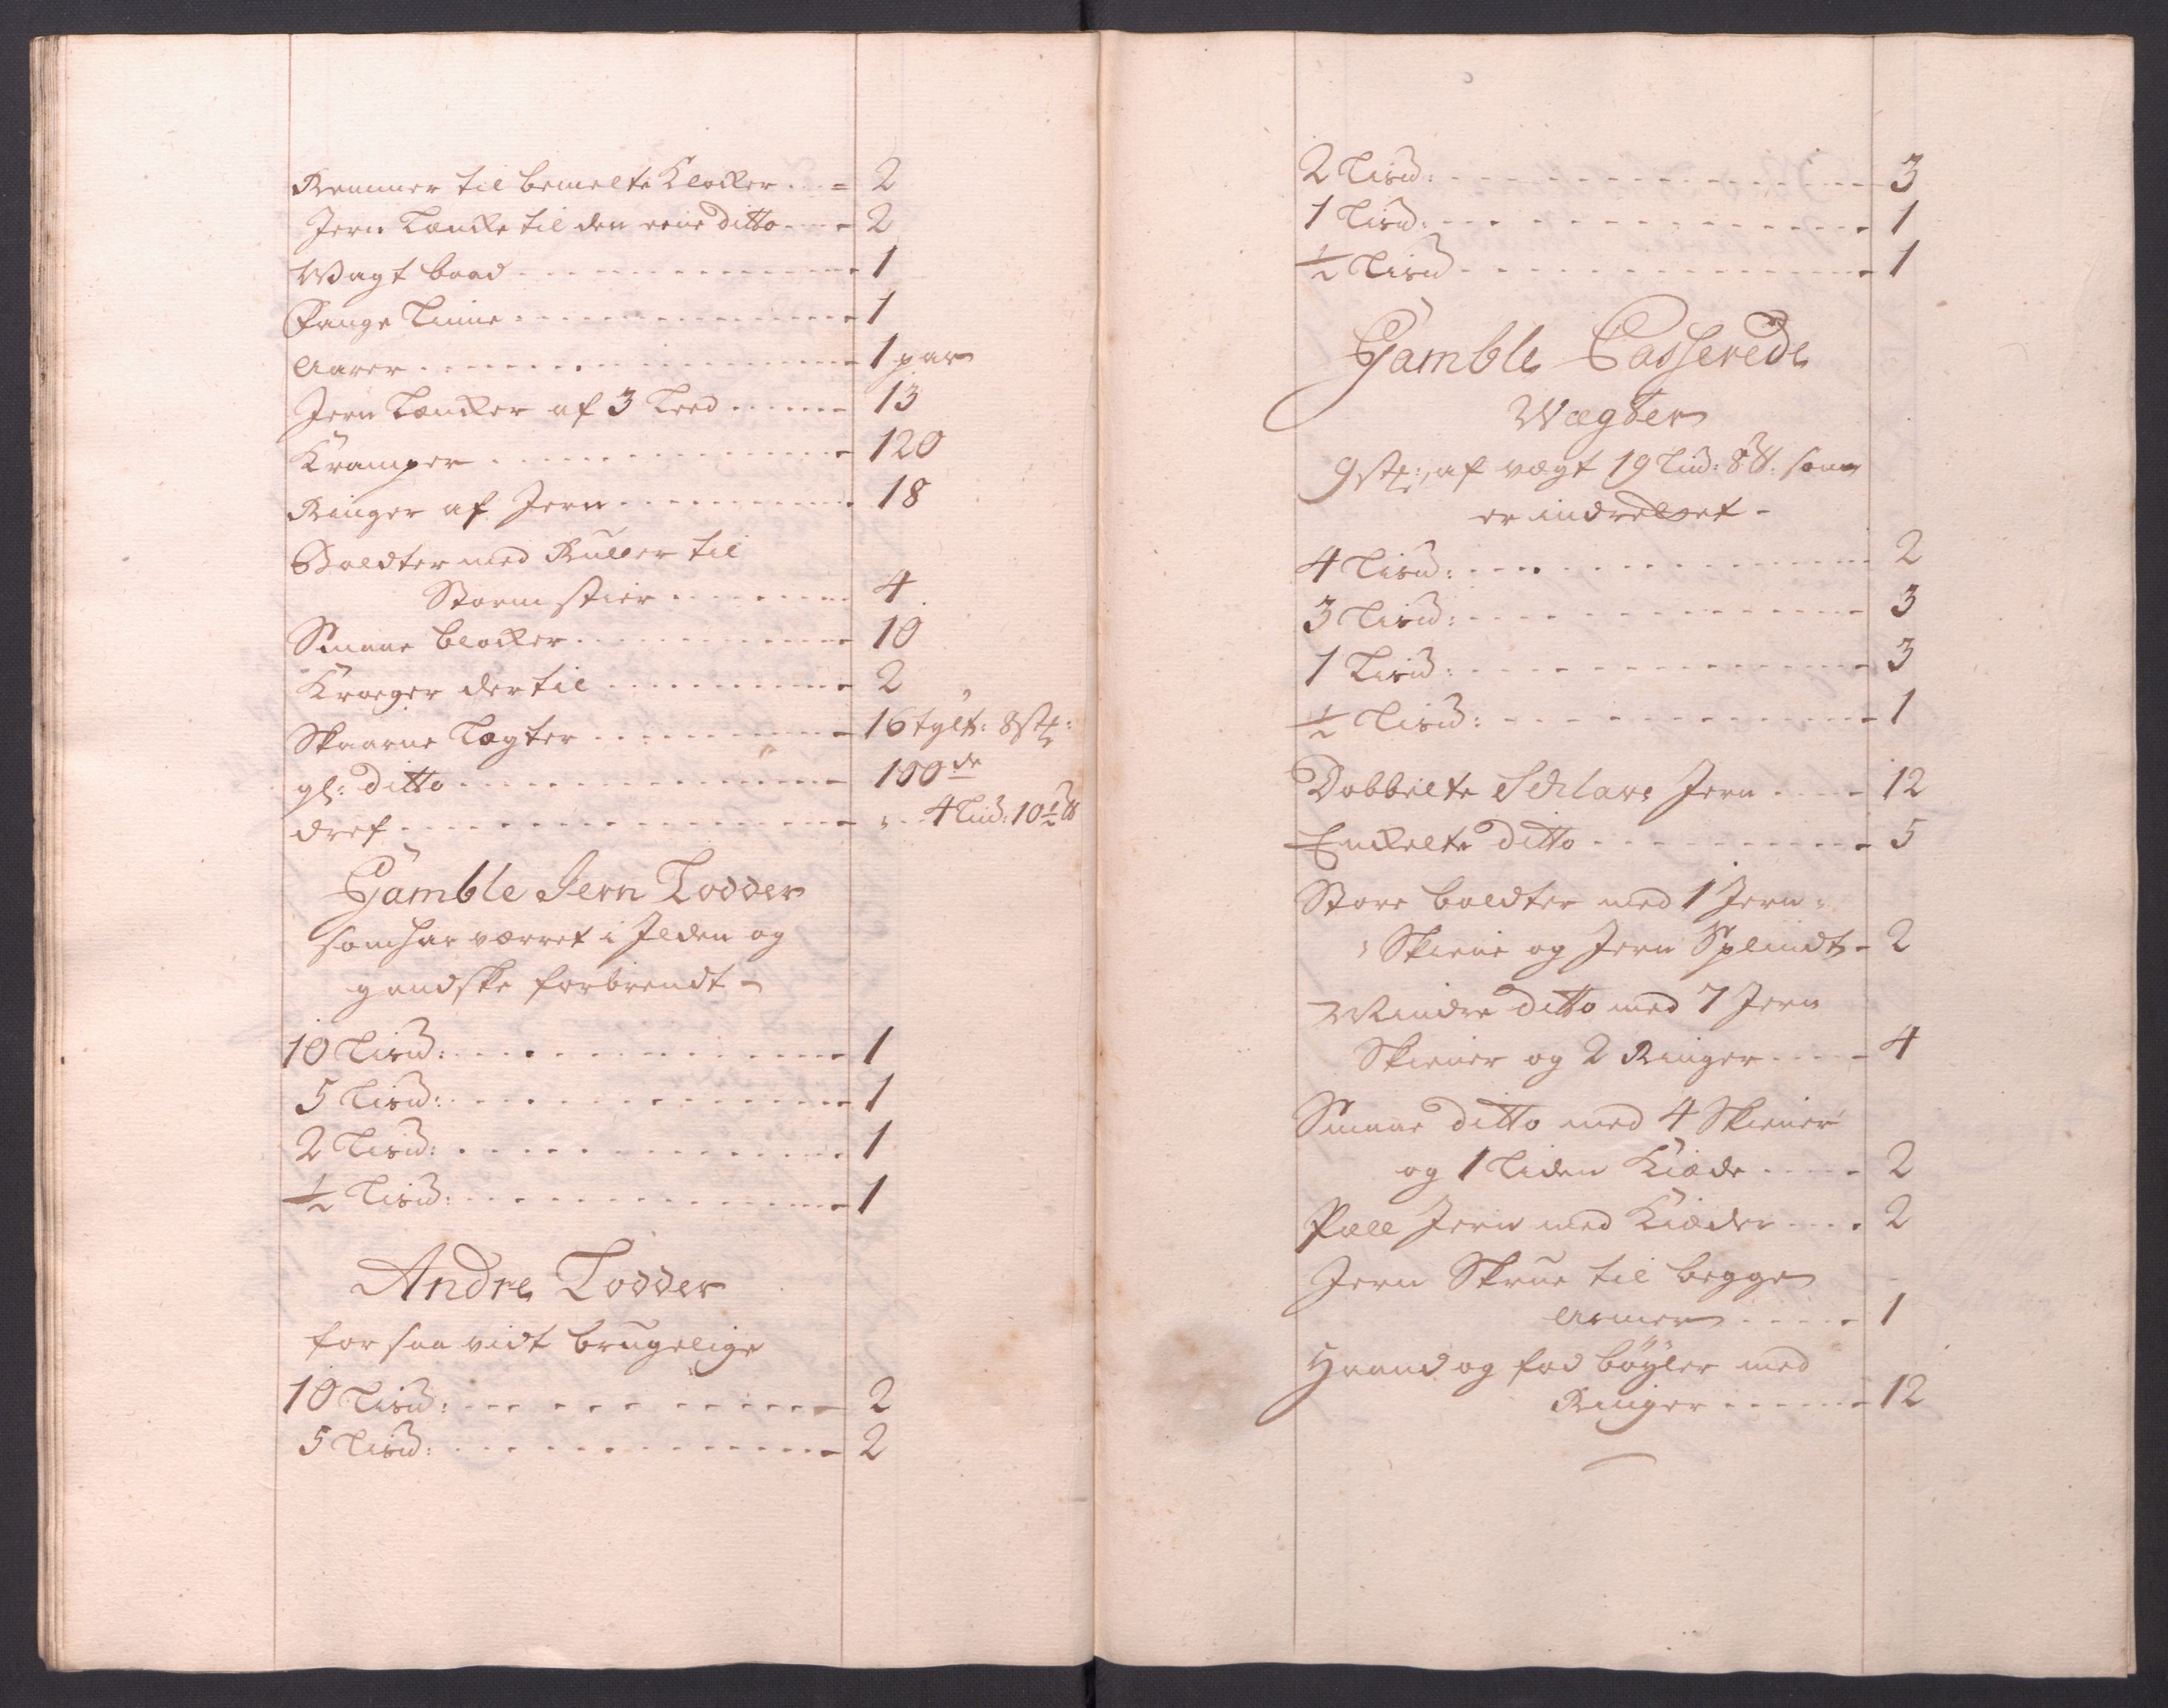 Remmer til bemelte Klocker . . = 2
Jern Lencke til den eene ditto - - - 2
Vagt baad - - - 1
Fange Linie - - - 1
Aarer - - - 1 par
Jern Lencker af 3 Leed - - - 13
Kramper - - - 120
Ringer af Jern - - - 18
Boldter med Ruller til
Storm stier - - - 4
Smaae blocker - - - 10
Kroeger dertil - - - 2
Skaarne Legter - - - 16 tylt: 8 stk:
gl: ditto - - - 100de
dref - - - " 4 Lisd: 10½ ℔
Gamble Jern Lodder
som har værret i Ilden og
gandske forbrendt -
10 Lisd: - - - 1
5 Lisd: - - - 1
2 Lisd: - - - 1
½ Lisd: - - - 1
Andre Lodder
for saa vidt brugelige
10 Lisd: - - - 2
5 Lisd: - - - 2
2 Lisd: - - - 3
1 Lisd: - - - 1
½ Lisd - - - 1
Gamble Casserede
Vægter
9 stk:, af vægt 19 Lisd: 8 ℔: som
er
4 Lisd: - - - 2
3 Lisd: - - - 3
1 Lisd: - - - 3
½ Lisd: - - - 1
Dobbelte Schlave Jern - - - 12
Enckelte ditto - - - 5
Store boldter med 1 Jern
Skiene og Jern Splindt - 2
Mindre ditto med 7 Jern
Skiener og 2 Ringer - - - 4
Smaae ditto med 4 Skiener
og 1 liden Kiæde - - - 2
Pæll Jern med Kiæder - - - 2
Jern Skrue til begge
Armer - - - 1
Haand og fod bøyler med
Ringer - - - 12